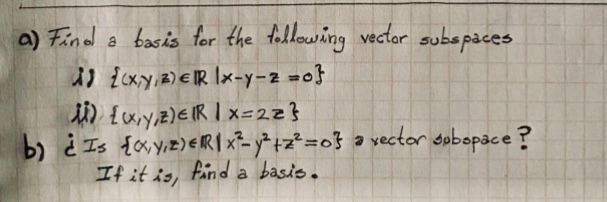 a) Find a basis for the following vector subspaces
i) {(x,y,z)∈ℝ |x-y-z=0}
ii) {(x,y,z)∈ℝ | x=2z}
b) ¿ Is {(x,y,z)∈ℝ| x²-y²+z²=0} a vector sobspace?
If it is, find a basis.